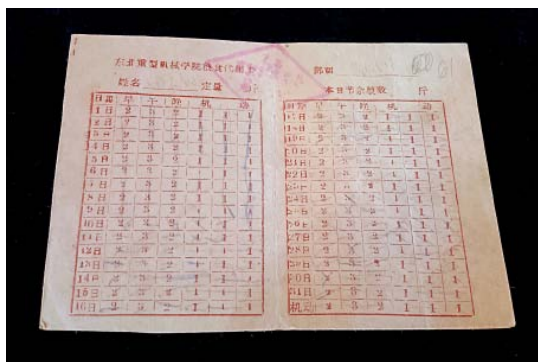 东北重型机械学院
姓名 定量 斤
日期 早 午 晚 机 动
1日 2 3 2 1 1 1
2日 2 3 2 1 1 1
3日 2 3 2 1 1 1
4日 2 3 2 1 1 1
5日 2 3 2 1 1 1
6日 2 3 2 1 1 1
7日 2 3 2 1 1 1
8日 2 3 2 1 1 1
9日 2 3 2 1 1 1
10日 2 3 2 1 1 1
11日 2 3 2 1 1 1
12日 2 3 2 1 1 1
13日 2 3 2 1 1 1
14日 2 3 2 1 1 1
15日 2 3 2 1 1 1
16日 2 3 2 1 1 1
本日节余粮数 斤
日期 早 午 晚 机 动
17日 2 3 2 1 1 1
18日 2 3 2 1 1 1
19日 2 3 2 1 1 1
20日 2 3 2 1 1 1
21日 2 3 2 1 1 1
22日 2 3 2 1 1 1
23日 2 3 2 1 1 1
24日 2 3 2 1 1 1
25日 2 3 2 1 1 1
26日 2 3 2 1 1 1
27日 2 3 2 1 1 1
28日 2 3 2 1 1 1
29日 2 3 2 1 1 1
30日 2 3 2 1 1 1
31日 2 3 2 1 1 1
机动 2 3 2 1 1 1